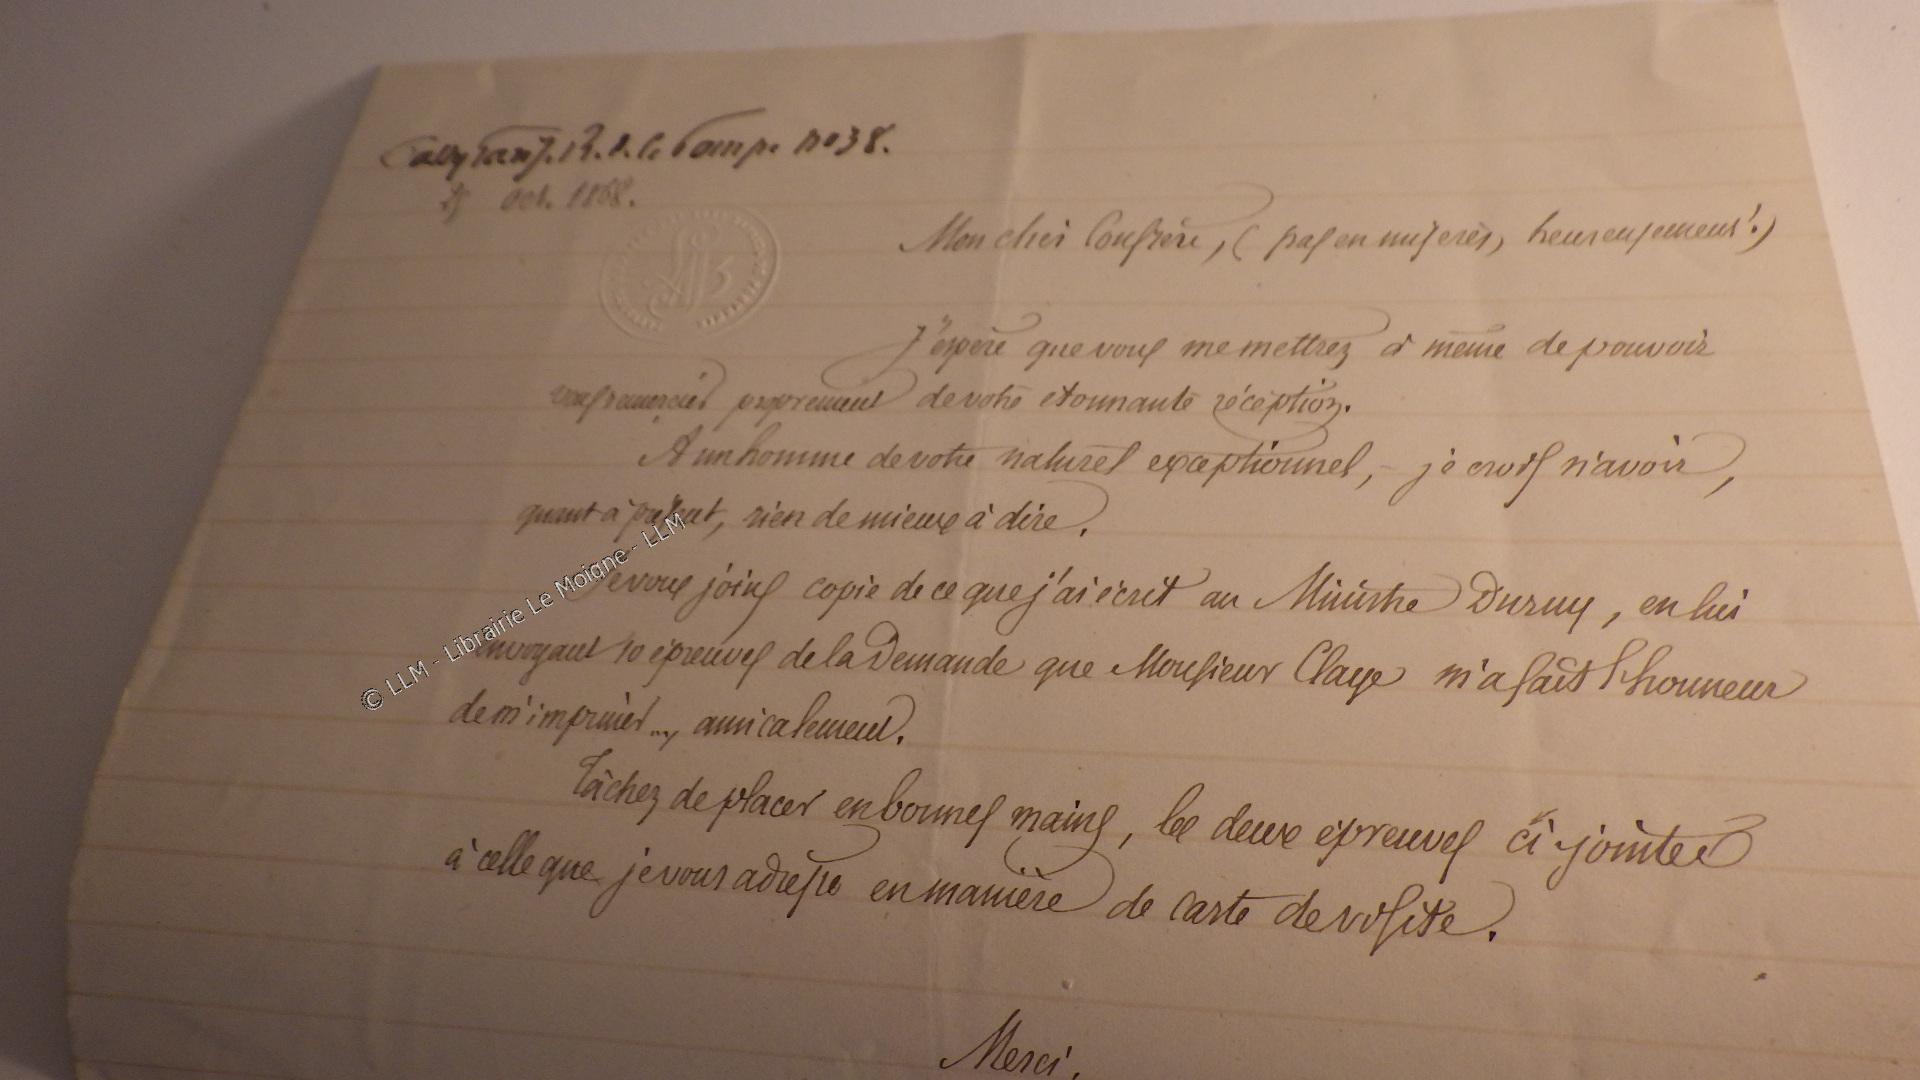 no 38.
oct. 1868.
Mon cher Confrère, (pas en misères, heureusement!)
J'espère que vous me mettrez à même de pouvoir
vous remercier proprement de votre étonnante réception.
A un homme de votre naturel exceptionnel, - je crois n'avoir,
quant à présent, rien de mieux à dire.
Je vous joins copie de ce que j'ai écrit au Ministre Duruy, en lui
envoyant 10 épreuves de la Demande que Monsieur Claye m'a fait l'honneur
de m'imprimer..., amicalement.
Tâchez de placer en bonnes mains, les deux épreuves ci-jointes
à celle que je vous adresse en manière de carte de visite.
Merci.
© LLM - Librairie Le Moigne - LLM